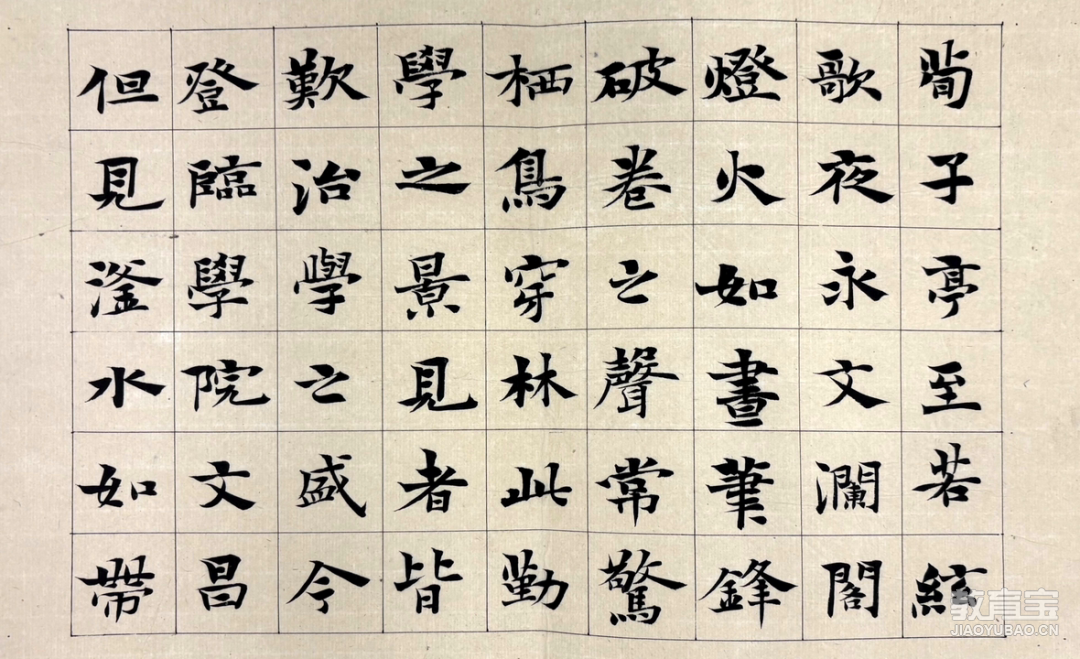 荀子亭至若絃
歌夜永文瀾閣
燈火如晝筆鋒
破卷之聲常驚
栖鳥穿林此勤
學之景見者皆
歎治學之盛今
登臨學院文昌
但見滏水如帶
教育宝
JIAOYUBAO.CN